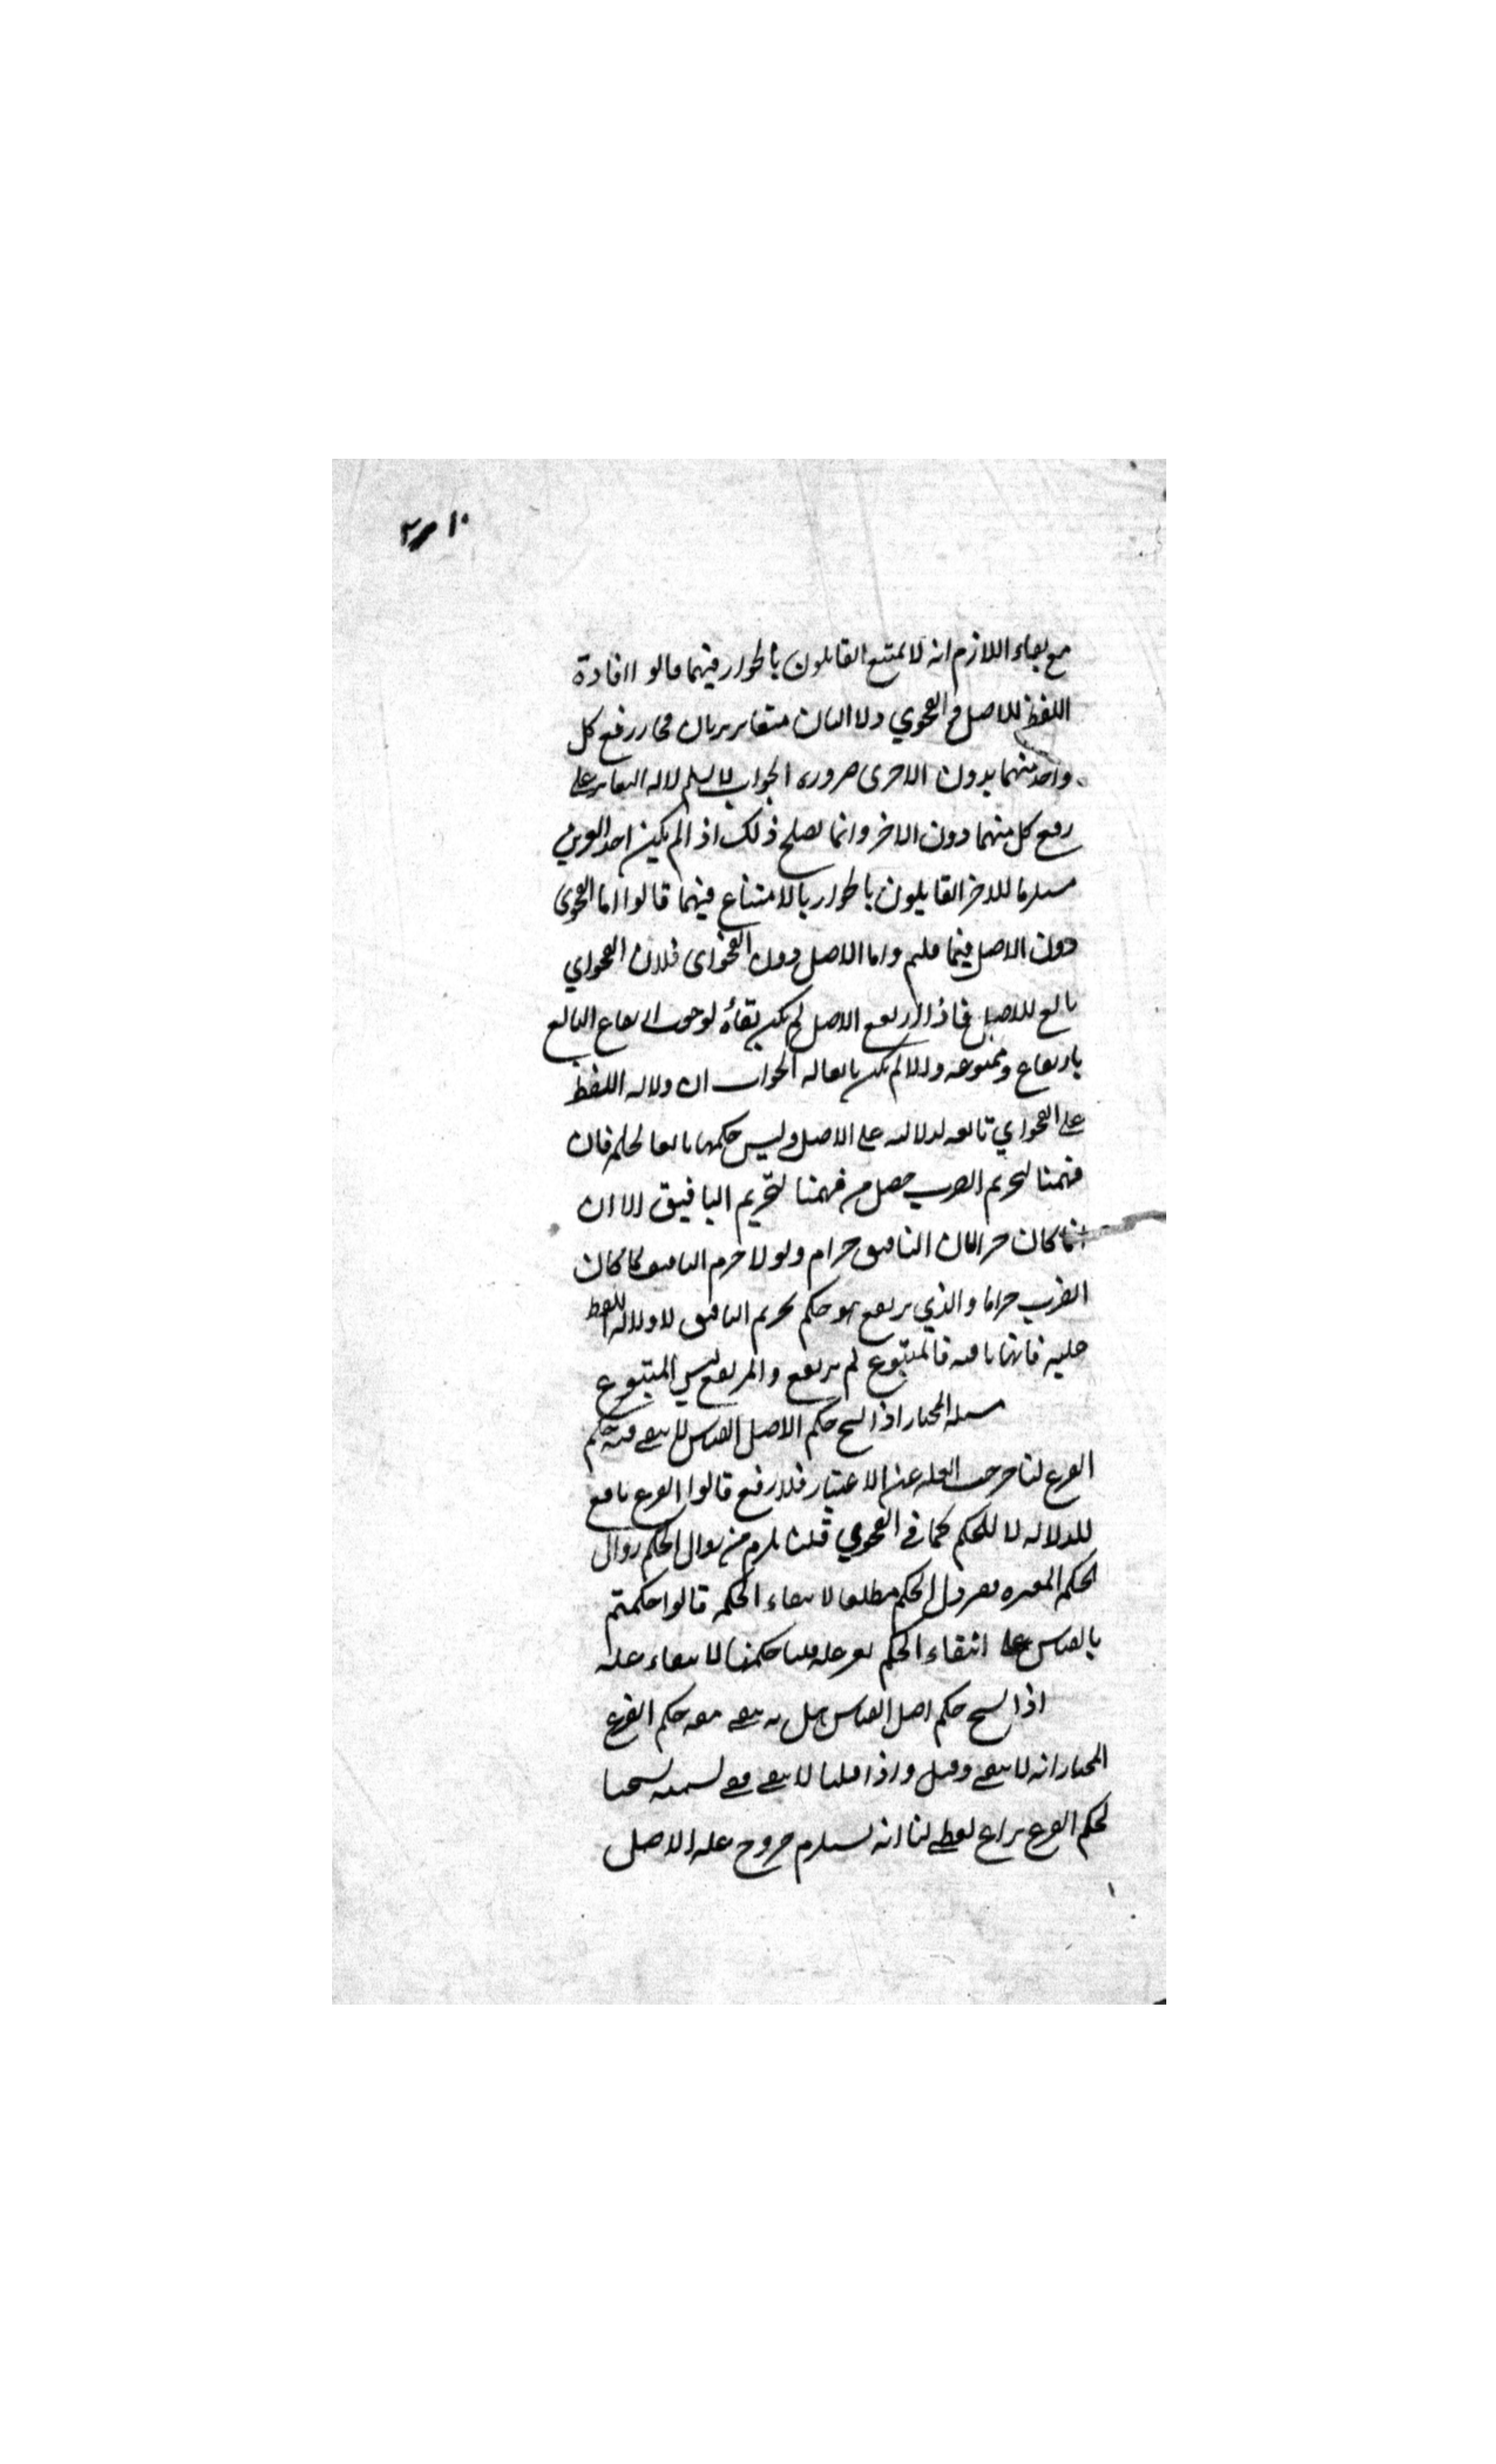 مع بقاء اللازم انه لا يمتنع القايلون بالجواز فيهما قالوا افادة
اللفظ للاصل والفحوي دلالتان متغايرتان فجاز رفع كل
واحد منهما بدون الاخرى ضرورة الجواب لا نسلم دلالة التغاير على
رفع كل منهما دون الاخر وانما يصلح ذلك اذا لم يكن احد الغيرين
مستلزما للاخر القايلون بالجواز بالامتناع فيهما قالوا اما الفحوى
دون الاصل فيما قلتم واما الاصل دون الفحواى فلان الفحواي
تابع للاصل فاذا ارتفع الاصل لم يكن بقاؤه لوجوب ارتفاع التابع
بارتفاع متبوعه والا لم يكن تابعا له الجواب ان دلالة اللفظ
على الفحواي تابعة لدلالته على الاصل وليس حكمها تابعا لحكمه فان
فهمنا لتحريم الضرب حصل من فهمنا لتحريم التافيف لا ان
انما كان حراما لان التافيف حرام ولولا حرمة التافيف لما كان
الضرب حراما والذي يرتفع هو حكم تحريم التافيف لا دلالة اللفظ
عليه فانها باقية فالمتبوع لم يرتفع والمرتفع ليس المتبوع
مسئلة المختار اذا نسخ حكم الاصل القياس لا يبقى معه حكم
الفرع لنا خرجت العلة عن الاعتبار فلا رفع قالوا الفرع تابع
للدلالة لا للحكم كما في الفحوي قلنا يلزم من زوال الحكم زوال
الحكم المعتبره فيزول الحكم مطلقا لانتفاء الحكمة قالوا حكمتم
بالقياس على انتفاء الحكم بغير علة قلنا حكمنا لانتفاء علته
اذا نسخ حكم اصل القياس هل يبقى معه حكم الفرع
المختار انه لا يبقى وقيل واذا قلنا لا يبقى ففي تسميته نسخا
لحكم الفرع نزاع لفظي لنا انه يستلزم خروج علة الاصل